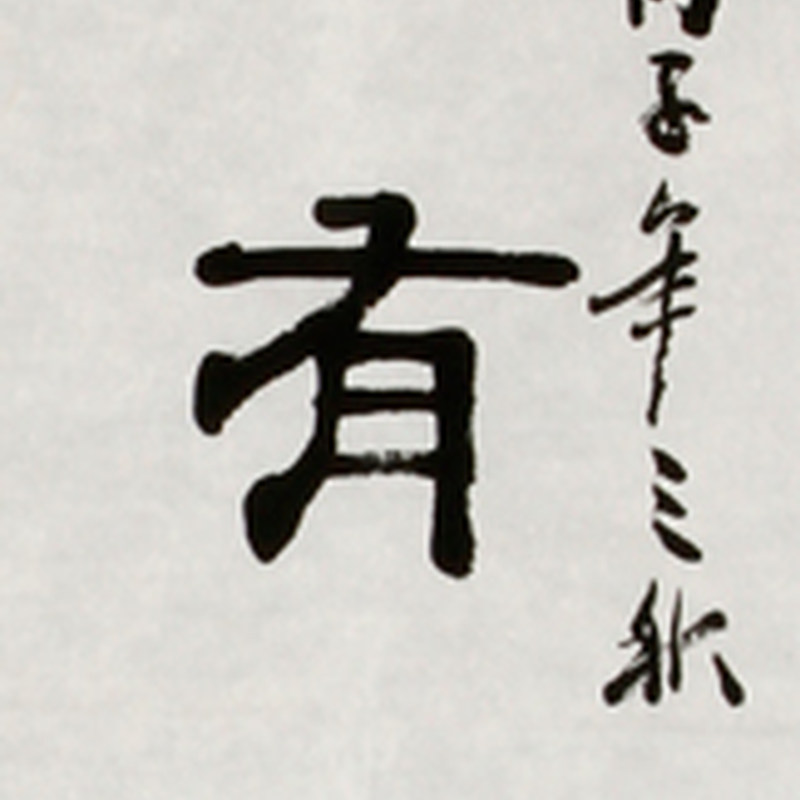 丙子年三秋
有